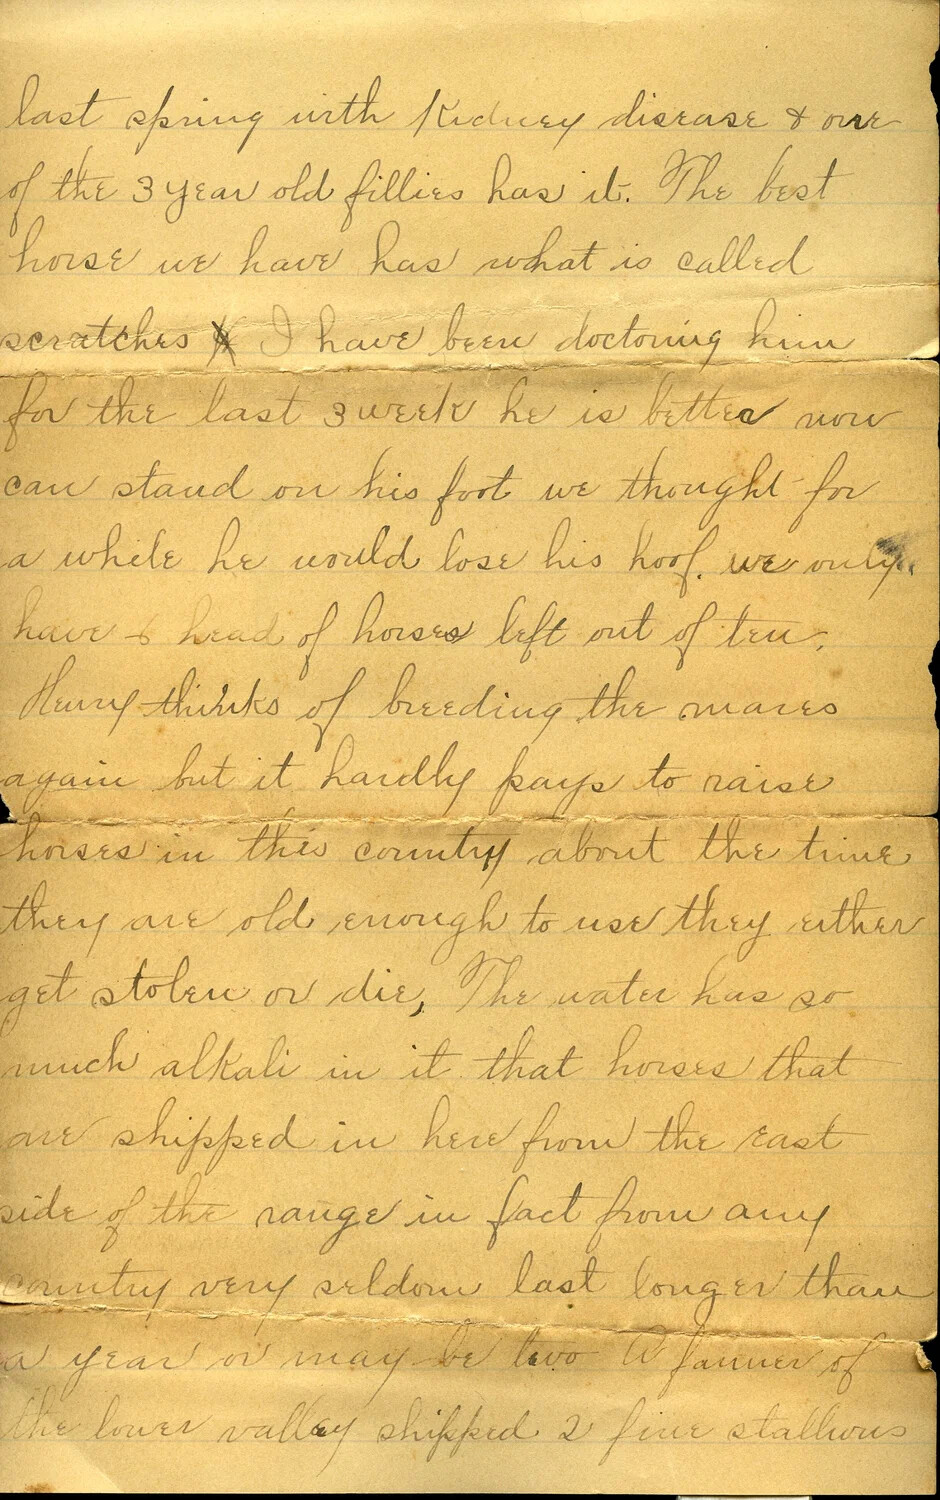 last spring with Kidney disease & one
of the 3 year old fillies has it. The best
horse we have has what is called
scratches I have been doctoring him
for the last 3 week he is better now
can stand on his foot we thought for
a while he would lose his hoof. we only
have head of horses left out of ten,
Henry thinks of breeding the mares
again but it hardly pays to raise
horses in this country about the time
they are old enough to use they either
get stolen or die, The water has so
much alkali in it that horses that
are shipped in here from the east
side of the range in fact from any
country very seldom last longer than
a year or may be two A farmer of
the lower valley shipped 2 fine stallions